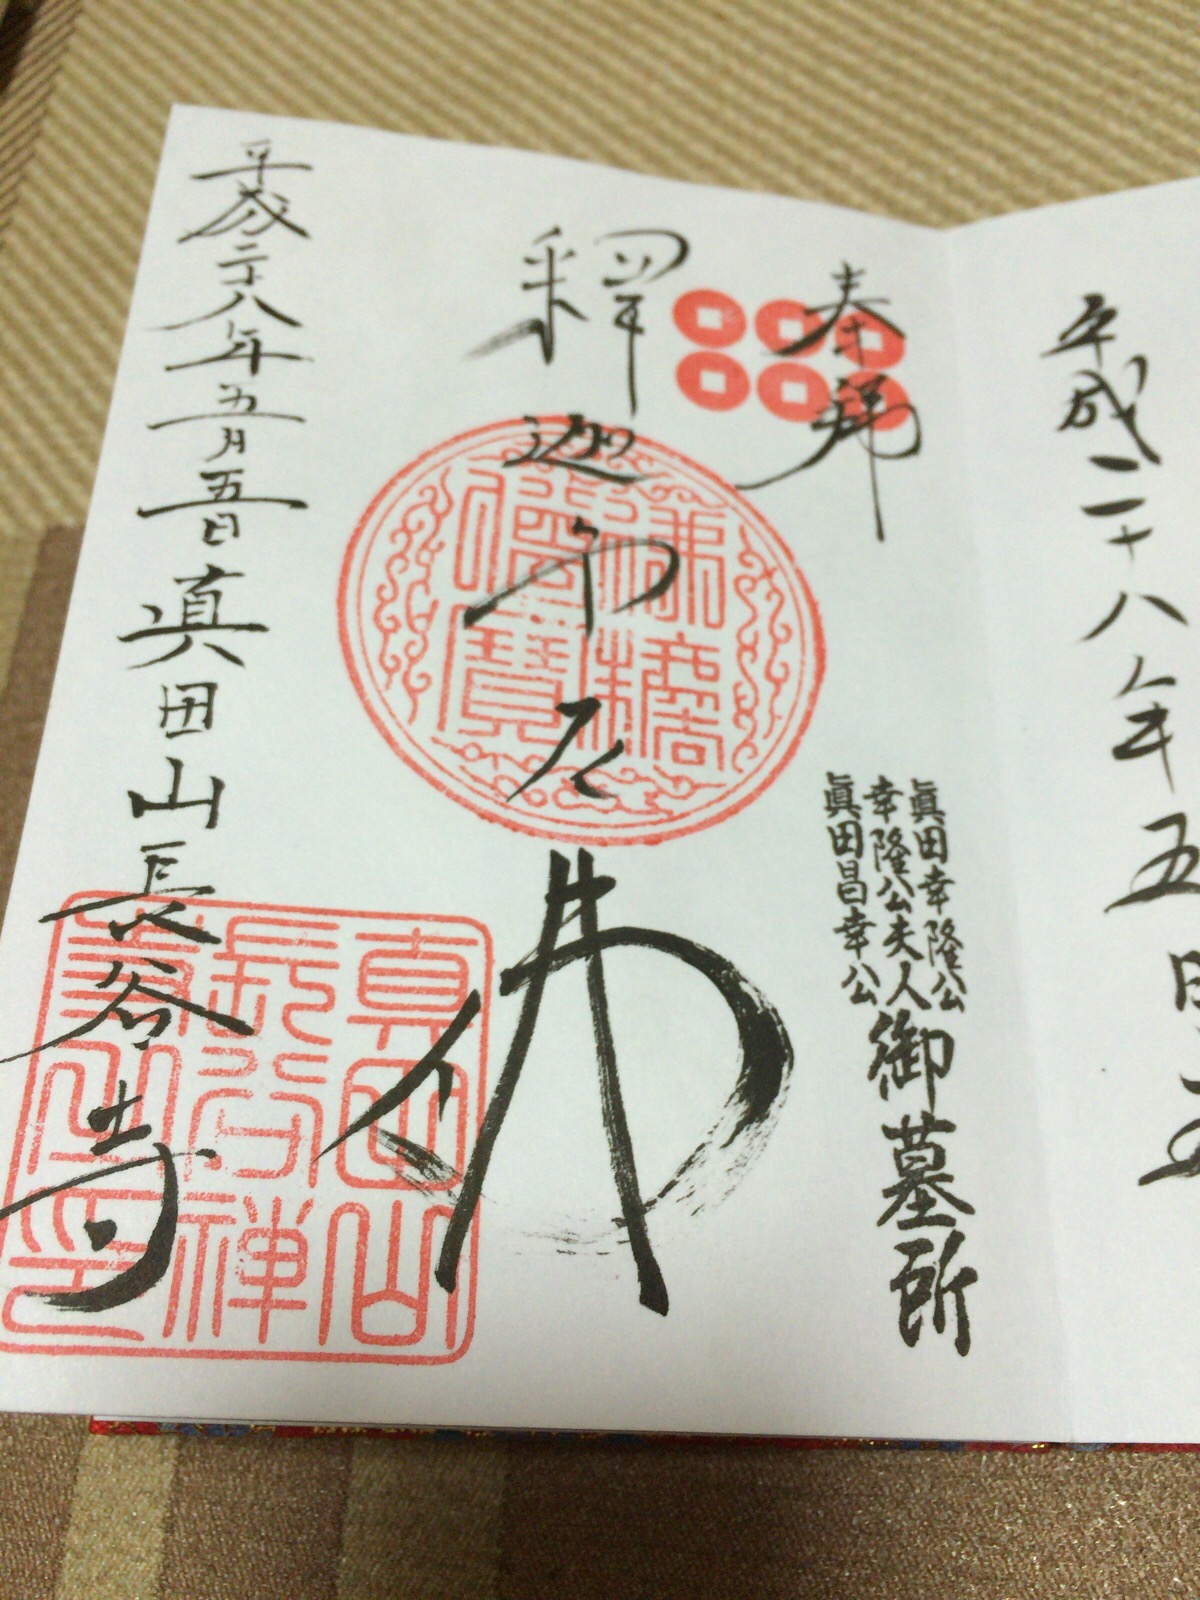 平成二十八年五月五
奉拝
眞田幸隆公
幸隆公夫人
眞田昌幸公
御墓所
釋迦牟尼佛
平成二十八年五月五日 眞田山長谷寺
真田山
長谷禅